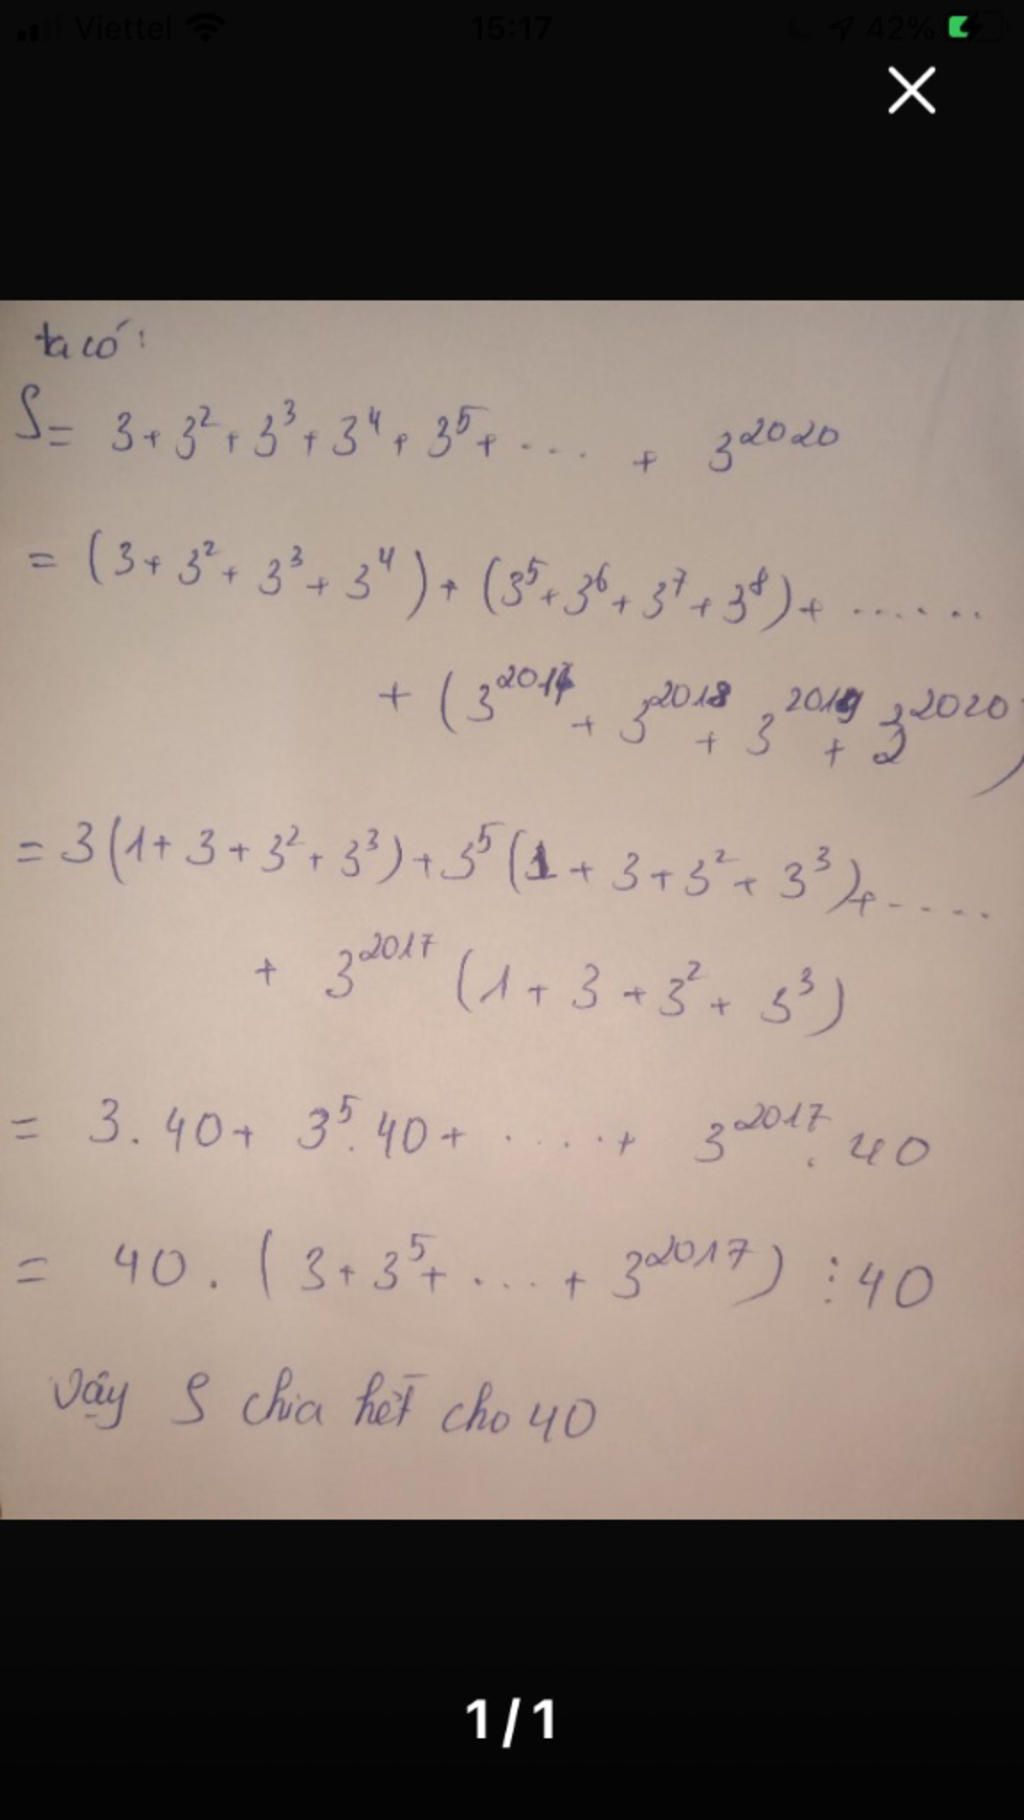 Viettel 15:17 42%
ta có:
S = 3 + 3² + 3³ + 3⁴ + 3⁵ + .... + 3²⁰²⁰
= (3 + 3² + 3³ + 3⁴) + (3⁵ + 3⁶ + 3⁷ + 3⁸) + ......
+ (3²⁰¹⁷ + 3²⁰¹⁸ + 3²⁰¹⁹ + 3²⁰²⁰)
= 3(1 + 3 + 3² + 3³) + 3⁵(1 + 3 + 3² + 3³) + .....
+ 3²⁰¹⁷ (1 + 3 + 3² + 3³)
= 3.40 + 3⁵.40 + ..... + 3²⁰¹⁷.40
= 40.(3 + 3⁵ + .... + 3²⁰¹⁷) ⋮ 40
Vậy S chia hết cho 40
1/1